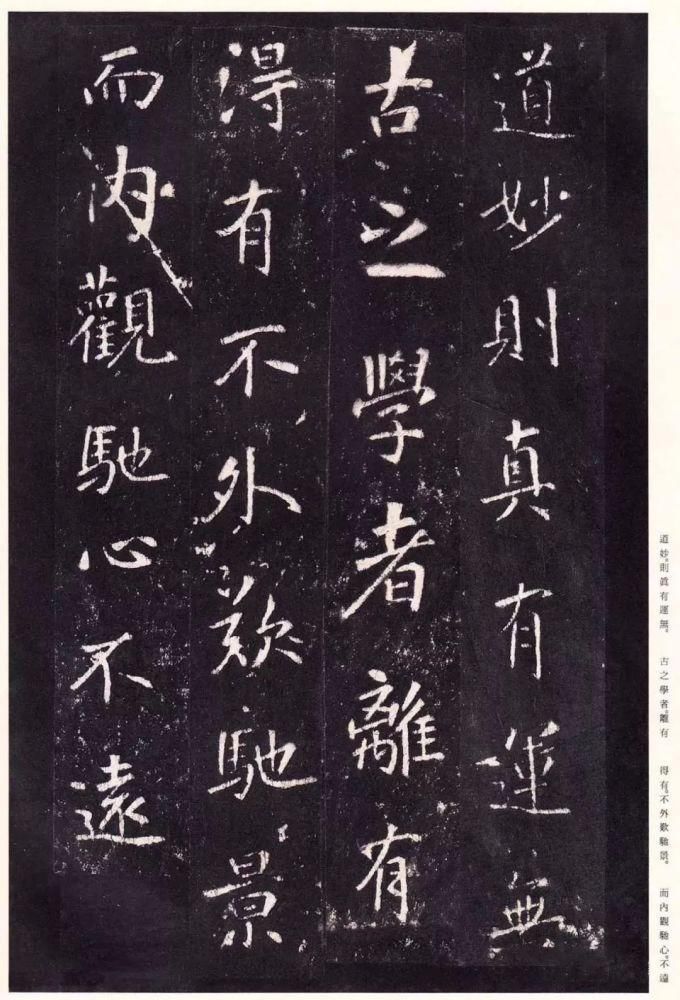 道妙則真有運無
古之學者離有
得有不外歎馳景
而內觀馳心不遠
道妙。則眞有運無。 古之學者。離有 得有。不外歎馳景。 而內觀馳心。不遠